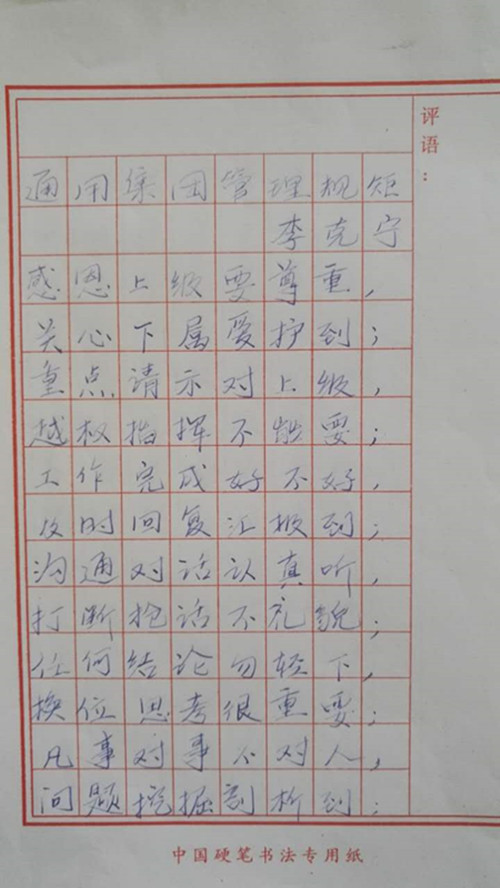 评语：
通用集团管理规矩
李克宁
感恩上级要尊重，
关心下属爱护到；
重点请示对上级，
越权指挥不能要；
工作完成好不好，
及时回复汇报到；
沟通对话认真听，
打断抢话不礼貌；
任何结论勿轻下，
换位思考很重要；
凡事对事不对人，
问题挖掘剖析到；
中国硬笔书法专用纸